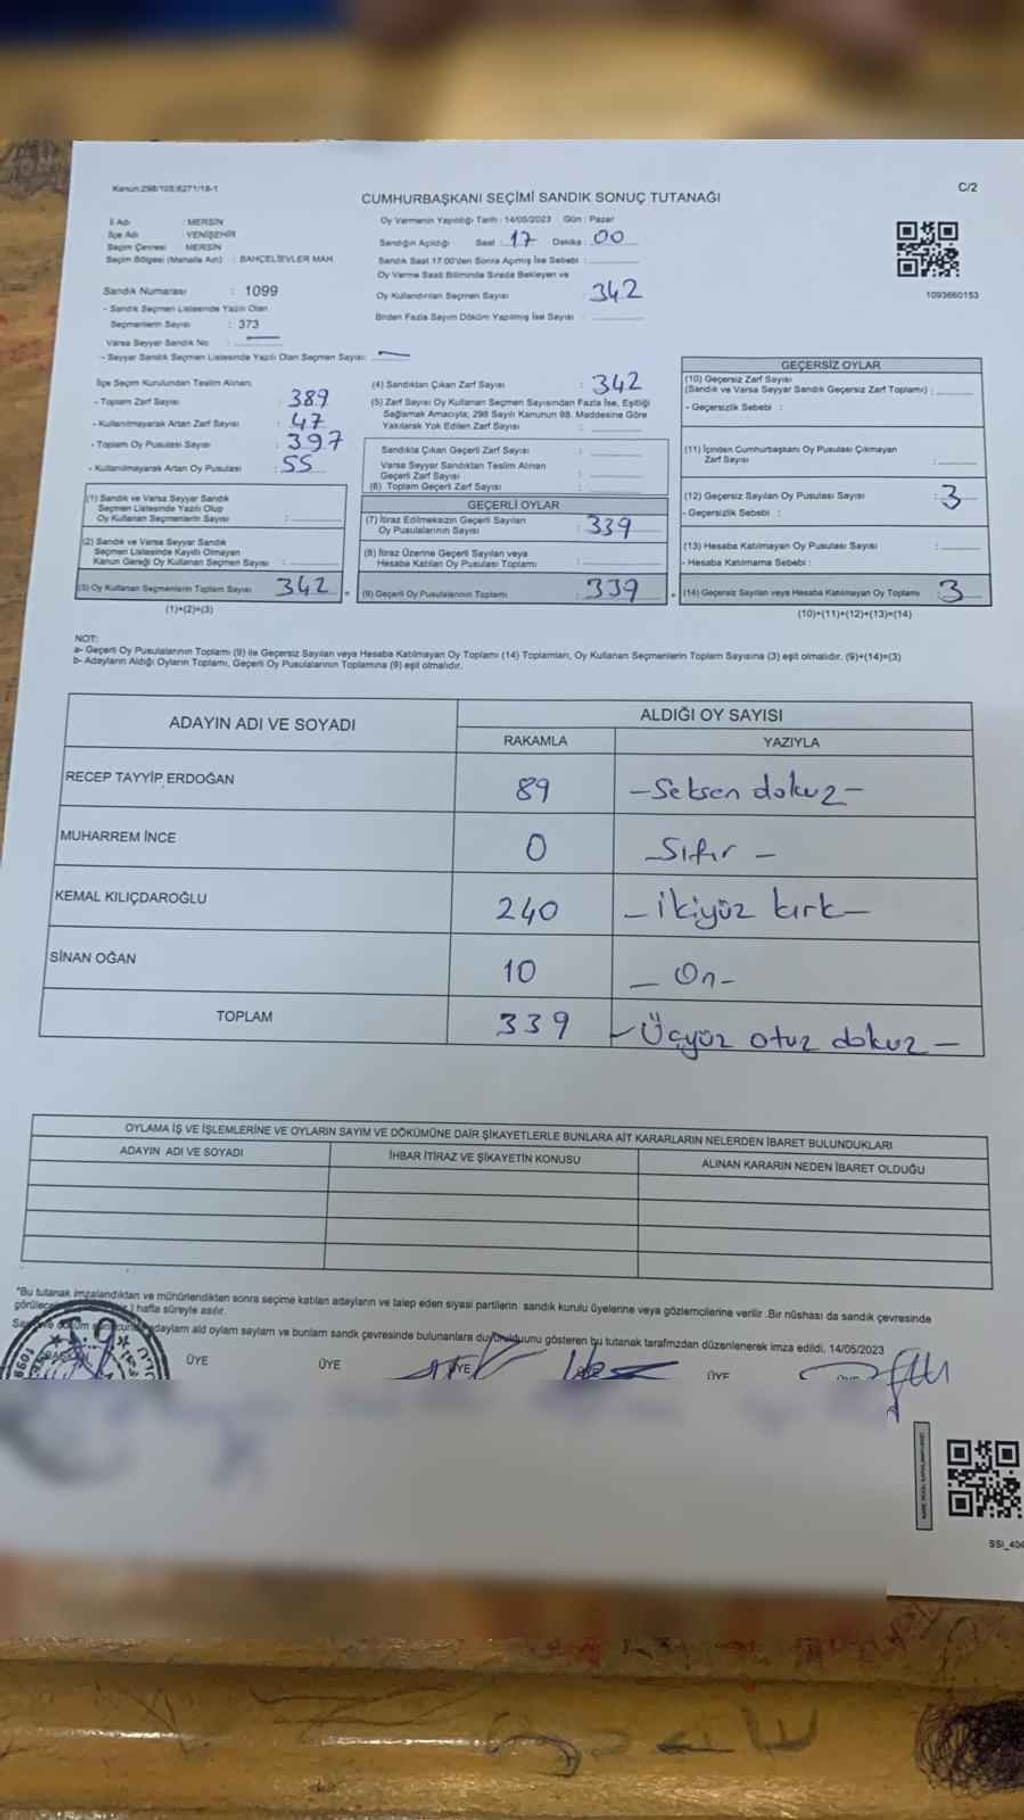 Kanun:298/105;6271/18-1
C/2
CUMHURBAŞKANI SEÇİMİ SANDIK SONUÇ TUTANAĞI
İl Adı : MERSİN
İlçe Adı : YENİŞEHİR
Seçim Çevresi : MERSİN
Seçim Bölgesi (Mahalle Adı) : BAHÇELİEVLER MAH.
Sandık Numarası : 1099
- Sandık Seçmen Listesinde Yazılı Olan
Seçmenlerin Sayısı : 373
Varsa Seyyar Sandık No : —
- Seyyar Sandık Seçmen Listesinde Yazılı Olan Seçmen Sayısı : —
Oy Vermenin Yapıldığı Tarih : 14/05/2023 Gün : Pazar
Sandığın Açıldığı Saat : 17 Dakika : 00
Sandık Saat 17.00'den Sonra Açılmış İse Sebebi :
Oy Verme Saati Bitiminde Sırada Bekleyen ve
Oy Kullandırılan Seçmen Sayısı : 342
Birden Fazla Sayım Döküm Yapılmış İse Sayısı :
1093660153
İlçe Seçim Kurulundan Teslim Alınan:
- Toplam Zarf Sayısı : 389
- Kullanılmayarak Artan Zarf Sayısı : 47
- Toplam Oy Pusulası Sayısı : 397
- Kullanılmayarak Artan Oy Pusulası : 55
(1) Sandık ve Varsa Seyyar Sandık
Seçmen Listesinde Yazılı Olup
Oy Kullanan Seçmenlerin Sayısı :
(2) Sandık ve Varsa Seyyar Sandık
Seçmen Listesinde Kayıtlı Olmayan
Kanun Gereği Oy Kullanan Seçmen Sayısı :
(3) Oy Kullanan Seçmenlerin Toplam Sayısı 342
(1)+(2)=(3)
(4) Sandıktan Çıkan Zarf Sayısı : 342
(5) Zarf Sayısı Oy Kullanan Seçmen Sayısından Fazla İse, Eşitliği
Sağlamak Amacıyla; 298 Sayılı Kanunun 98. Maddesine Göre
Yakılarak Yok Edilen Zarf Sayısı :
Sandıkta Çıkan Geçerli Zarf Sayısı :
Varsa Seyyar Sandıktan Teslim Alınan
Geçerli Zarf Sayısı :
(6) Toplam Geçerli Zarf Sayısı :
GEÇERLİ OYLAR
(7) İtiraz Edilmeksizin Geçerli Sayılan
Oy Pusulalarının Sayısı : 339
(8) İtiraz Üzerine Geçerli Sayılan veya
Hesaba Katılan Oy Pusulası Toplamı :
(9) Geçerli Oy Pusulalarının Toplamı : 339
GEÇERSİZ OYLAR
(10) Geçersiz Zarf Sayısı
(Sandık ve Varsa Seyyar Sandık Geçersiz Zarf Toplamı) :
- Geçersizlik Sebebi :
(11) İçinden Cumhurbaşkanı Oy Pusulası Çıkmayan
Zarf Sayısı :
(12) Geçersiz Sayılan Oy Pusulası Sayısı : 3
- Geçersizlik Sebebi :
(13) Hesaba Katılmayan Oy Pusulası Sayısı :
- Hesaba Katılmama Sebebi :
(14) Geçersiz Sayılan veya Hesaba Katılmayan Oy Toplamı 3
(10)+(11)+(12)+(13)=(14)
NOT:
a- Geçerli Oy Pusulalarının Toplamı (9) ile Geçersiz Sayılan veya Hesaba Katılmayan Oy Toplamı (14) Toplamları, Oy Kullanan Seçmenlerin Toplam Sayısına (3) eşit olmalıdır. (9)+(14)=(3)
b- Adayların Aldığı Oyların Toplamı, Geçerli Oy Pusulalarının Toplamına (9) eşit olmalıdır.
ADAYIN ADI VE SOYADI
ALDIĞI OY SAYISI
RAKAMLA YAZIYLA
RECEP TAYYİP ERDOĞAN 89 -Seksen dokuz-
MUHARREM İNCE 0 -Sıfır-
KEMAL KILIÇDAROĞLU 240 -ikiyüz kırk-
SİNAN OĞAN 10 -On-
TOPLAM 339 -Üçyüz otuz dokuz-
OYLAMA İŞ VE İŞLEMLERİNE VE OYLARIN SAYIM VE DÖKÜMÜNE DAİR ŞİKAYETLERLE BUNLARA AİT KARARLARIN NELERDEN İBARET BULUNDUKLARI
ADAYIN ADI VE SOYADI İHBAR İTİRAZ VE ŞİKAYETİN KONUSU ALINAN KARARIN NEDEN İBARET OLDUĞU
*Bu tutanak imzalandıktan ve mühürlendikten sonra seçime katılan adayların ve talep eden siyasi partilerin sandık kurulu üyelerine veya gözlemcilerine verilir. Bir nüshası da sandık çevresinde
hafta süreyle asılır.
ald oylam saylam ve bunlam sandk çevresinde bulunanlara gösteren bu tutanak tarafımzdan düzenlenerek imza edildi. 14/05/2023
ÜYE ÜYE ÜYE ÜYE